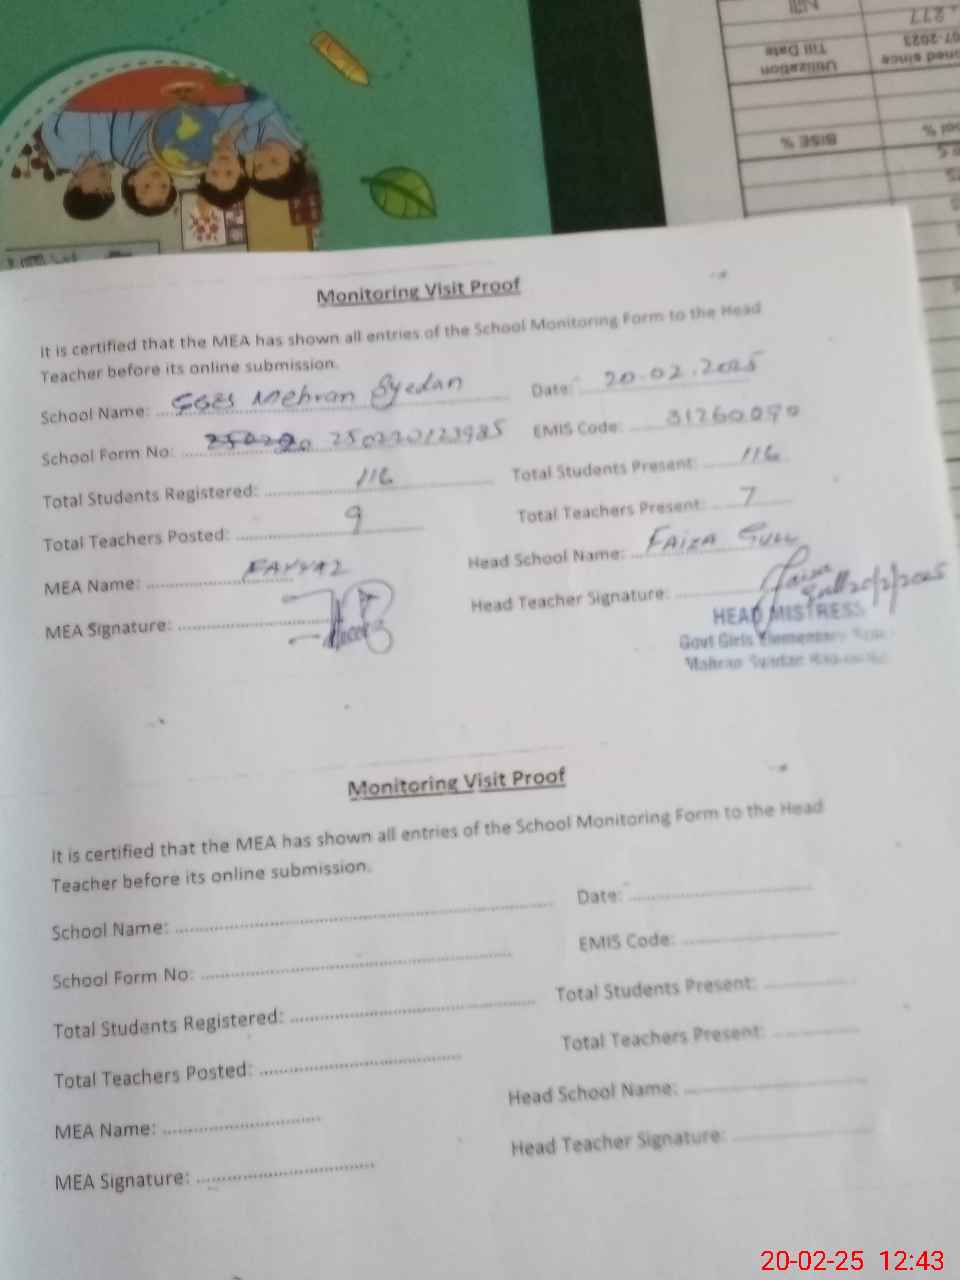 Till Date
Utilization
BISE %
Monitoring Visit Proof
It is certified that the MEA has shown all entries of the School Monitoring Form to the Head
Teacher before its online submission.
School Name: GGES Mehran Syedan Date: 20.02.2025
School Form No: 250220123985 EMIS Code: 31260090
Total Students Registered: 116 Total Students Present: 116
Total Teachers Posted: 9 Total Teachers Present: 7
MEA Name: FAYYAZ Head School Name: FAIZA GULL
MEA Signature: Head Teacher Signature: Faiza Gull 20/2/2025
HEAD MISTRESS
Govt Girls Elementary
Monitoring Visit Proof
It is certified that the MEA has shown all entries of the School Monitoring Form to the Head
Teacher before its online submission.
School Name: Date:
School Form No: EMIS Code:
Total Students Registered: Total Students Present:
Total Teachers Posted: Total Teachers Present:
MEA Name: Head School Name:
MEA Signature: Head Teacher Signature:
20-02-25 12:43